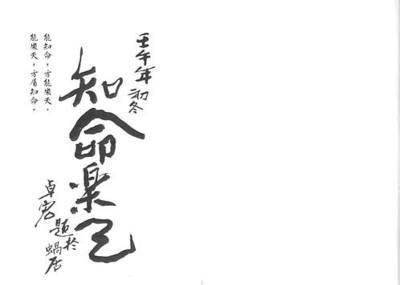 壬午年初冬
知命楽天
卓宏題於蝸居
能知命，方能樂天，
能樂天，方屬知命。